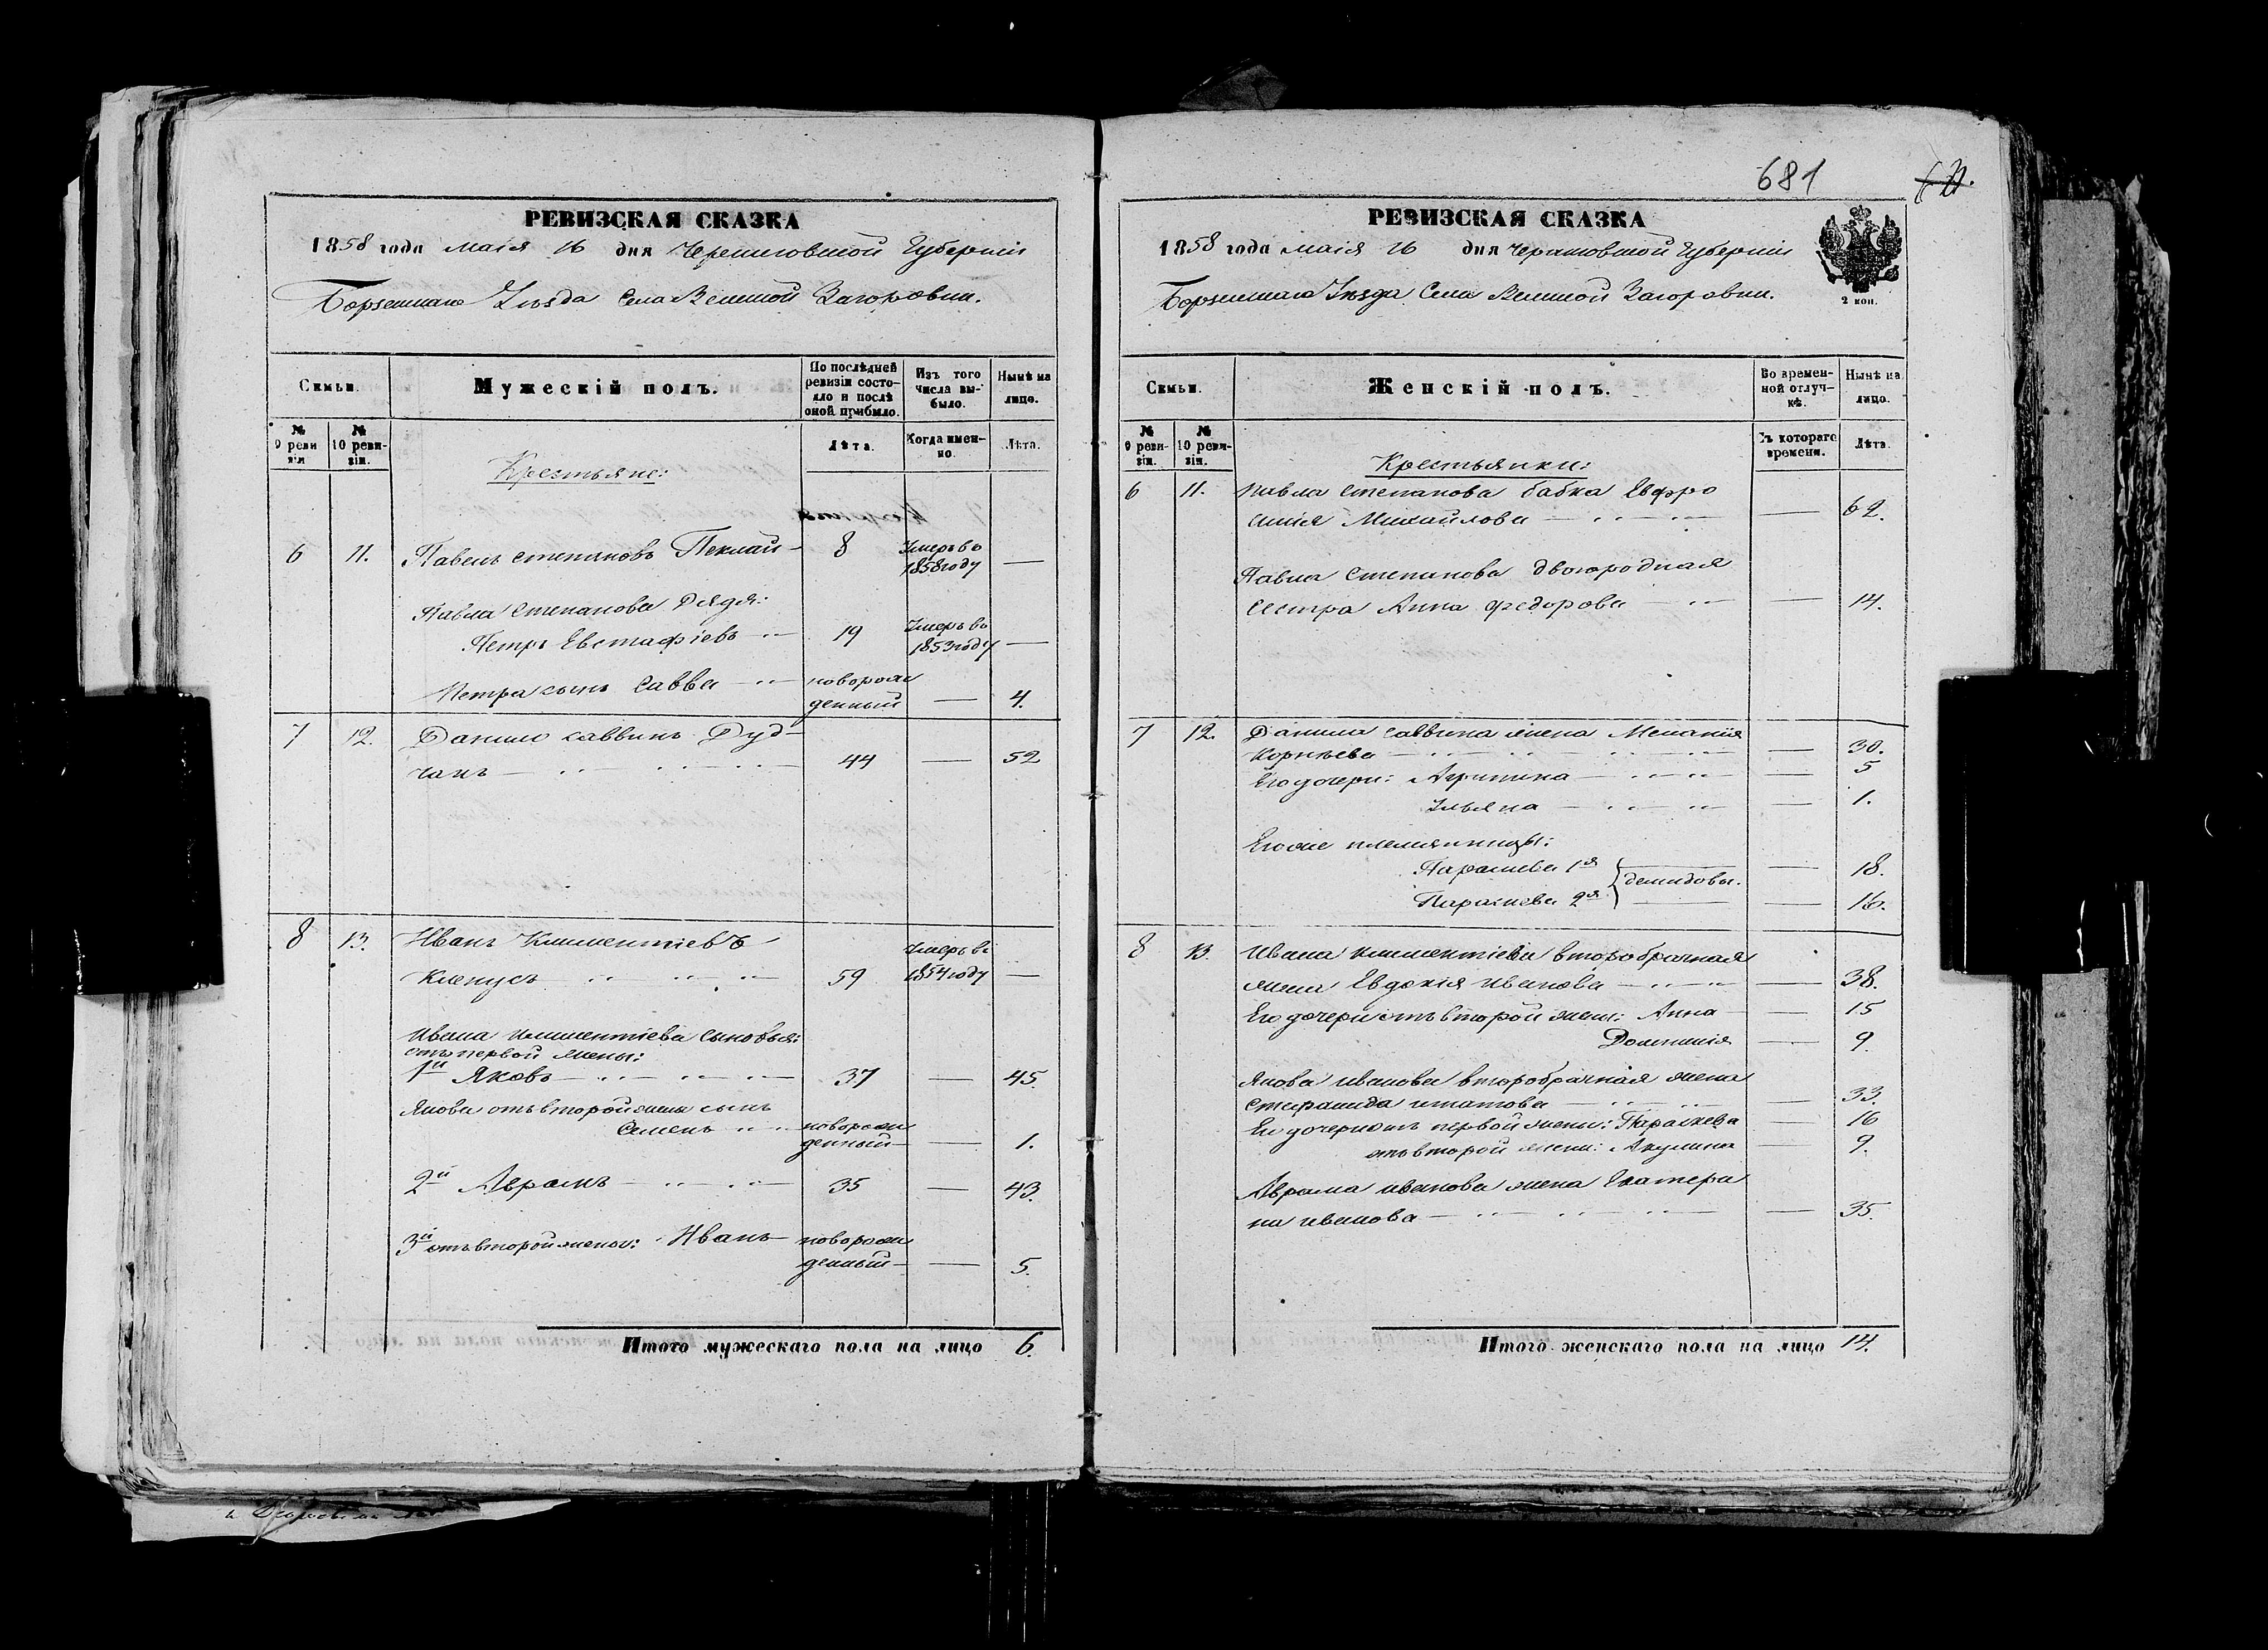 РЕВИЗСКАЯ СКАЗКА
1858 года маія 16 дня Черниговской Губерніи
Борзенскаго Уѣзда Села Великой Загоровки.
Семьи.
Мужескій полъ.
По послѣдней ревизіи состояло и послѣ оной прибыло.
Изъ того числа выбыло.
Нынѣ на лицо.
№ 9 ревизіи
№ 10 ревизіи.
Лѣта.
Когда именно.
Лѣта.
Крестьяне:
6 11. Павелъ Степановъ 8 Умеръ во
1858 году —
Павла Степанова дядя:
Петръ Евстафіевъ 19 Умеръ во
1853 году —
Петра сынъ Савва новорож
денный — 4.
7 12. Данило Саввинъ Дуд-
чакъ 44 — 52
8 13. Иванъ Климентіевъ Умеръ въ
59 1854 году —
Ивана Климентіева сыновья:
отъ первой жены:
1й Яковъ 37 — 45.
Якова отъ второй жены сынъ
Семенъ новорож
денный — 1.
2й Аврамъ 35 — 43.
3й отъ второй жены: Иванъ новорож
денный — 5.
Итого мужескаго пола на лицо 6.
681
РЕВИЗСКАЯ СКАЗКА
1858 года маія 16 дня Черниговской Губерніи
Борзенскаго Уѣзда Села Великой Загоровки.
2 коп.
Семьи.
Женскій полъ.
Во временной отлучкѣ.
Нынѣ на лицо.
№ 9 ревизіи.
№ 10 ревизіи.
Съ котораго времени.
Лѣта.
Крестьянки:
6 11. Павла Степанова бабка Евфро
синія Михайлова — 62.
Павла Степанова двоюродная
сестра Анна Федорова — 14.
7 12. Данила Саввина жена Меланія
Корнѣева — 30.
Его дочери: Агрипина — 5
Ульяна — 1.
Его же племянницы:
Параскева 1я — 18.
Демидовы.
Параскева 2я — 16.
8 13. Ивана Климентіева второбрачная
жена Евдокія Иванова — 38.
Его дочери отъ второй жены: Анна — 15
Домникія — 9.
Якова Иванова второбрачная жена
Стефанида Игнатова — 33.
Его дочери отъ первой жены: Параскева 16
отъ второй жены: Акулина — 9.
Аврама Иванова жена Екатери
на Иванова — 35.
Итого женскаго пола на лицо 14.